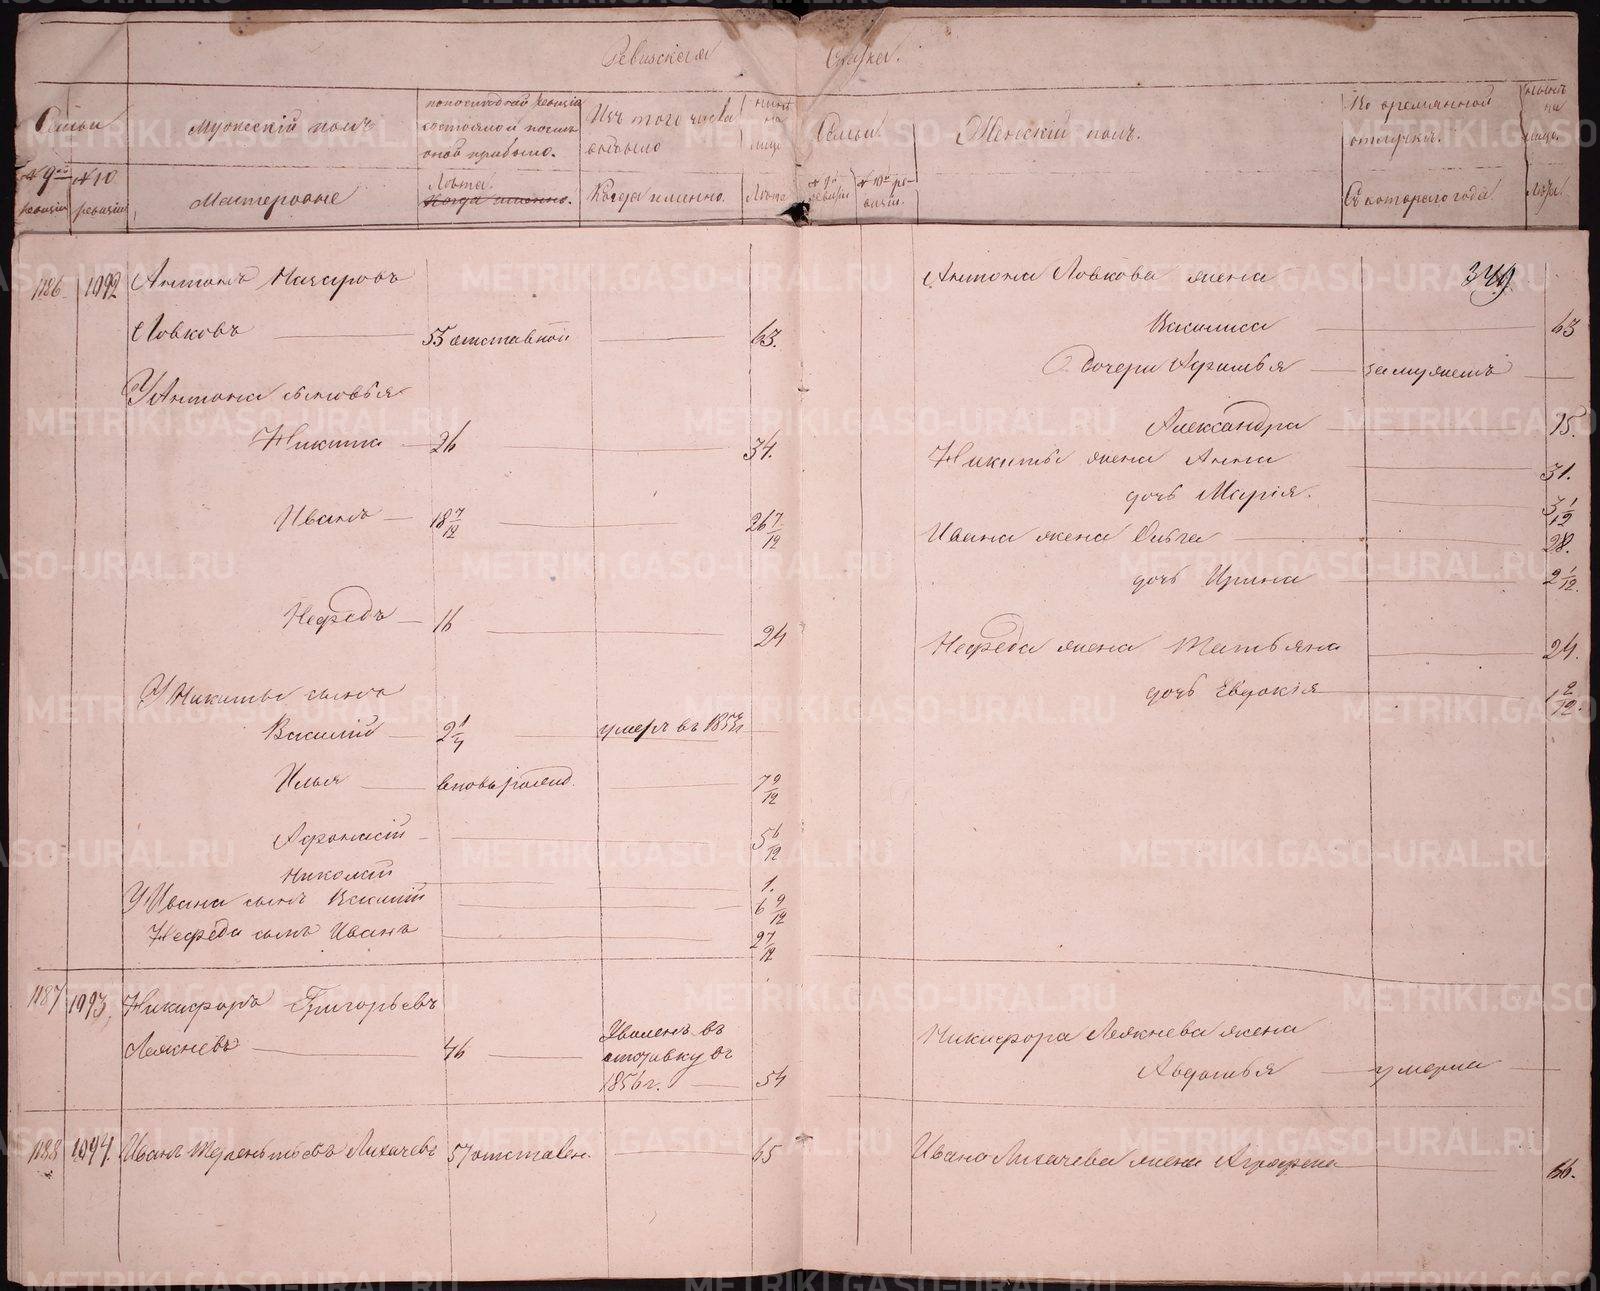 Ревизская Сказка.
Семьи
№ 9ой ревизіи
№ 10 ревизіи
Мужескій полъ
Мастеровые
по последней ревизіи
состояло и после
оной прибыло.
Лѣта.
Изъ того числа
выбыло
Когда именно.
ныне
на
лицо
Лѣта
Семьи
№ 9й ревизіи
№ 10й ревизіи.
Женскій полъ.
Во временной
отлучкѣ.
Съ котораго года
ныне
на
лицо
Лѣта
1186. 1092 Антонъ Назаровъ
Ловковъ 55 отставной 63.
У Антона сыновья
Никита 26 34.
Иванъ 18 7/12 26 7/12
Нефедъ 16 24
У Никиты сынъ
Василій 2 1/4 умеръ въ
Илья вновь рожд. 7 9/12
Афонасій 5 6/12
Николай 1.
У Ивана сынъ Василій 6 9/12
Нефеда сынъ Иванъ 2 7/12
1187 1093, Никифоръ Григорьевъ
Лежневъ 46 Уволенъ въ
отставку въ
1856 г. 54
1188 1094. Иванъ Терентьевъ Лихачевъ 57 отставн. 65
349
Антона Ловкова жена
Василиса 63
дочери замужемъ
Александра 15.
Никиты жена Анна 31.
дочь Марія. 3 1/12
Ивана жена Ольга 28.
дочь Ирина 2 1/12.
Нефеда жена Татьяна 24.
дочь Евдокія 1 2/12.
Никифора Лежнева жена
Авдотья умерла
Ивана Лихачева жена Аграфена 66.
METRIKI.GASO-URAL.RU